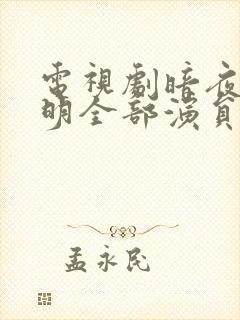 電視劇暗夜
明全部演員
孟永民